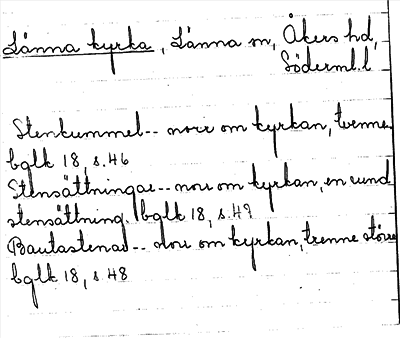 Länna kyrka, Länna sn, Åkers hd,
Söderml.l
Stenkummel-- norr om kyrkan, tvenne
bglk 18, s.46
Stensättningar-- norr om kyrkan, en rund
stensättning. bglk 18, s.49
Bautastenar-- norr om kyrkan, trenne större
bglk 18, s 48